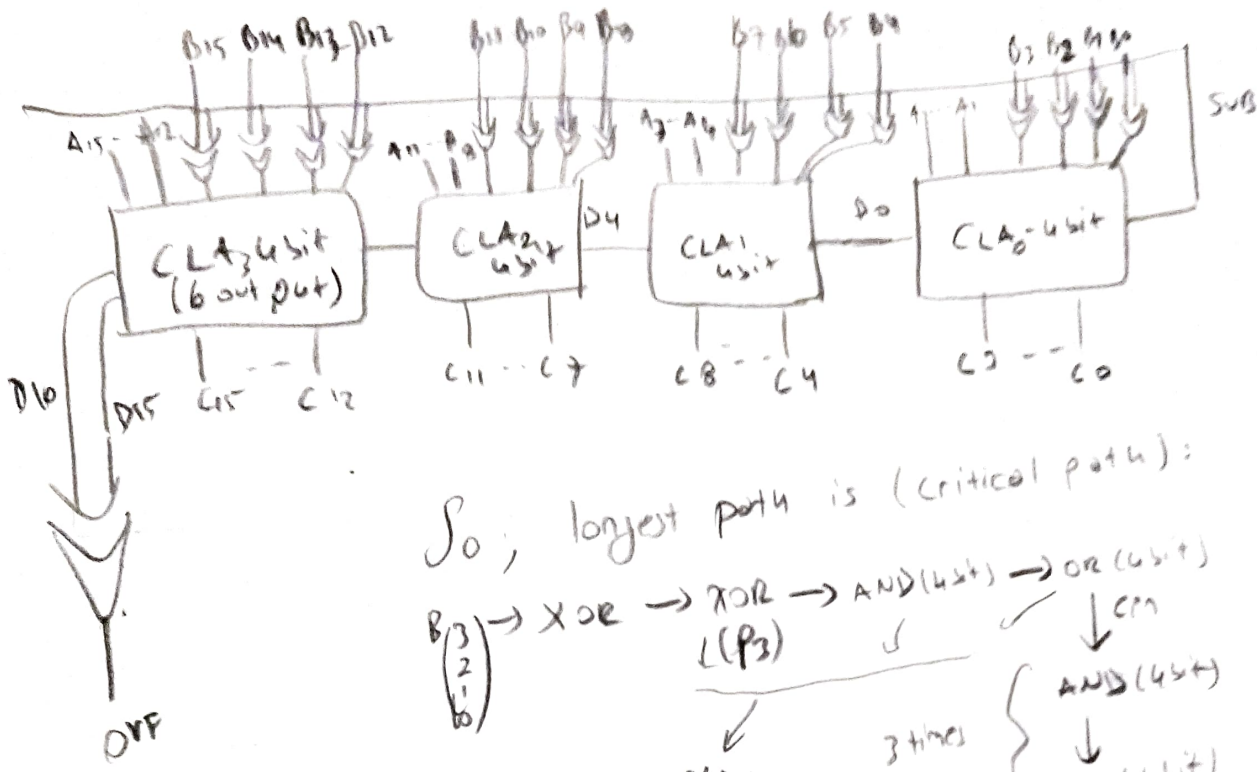 B15 B14 B13 B12 B11 B10 B9 B8 B7 B6 B5 B4 B3 B2 B1 B0
SUB
A15 - A12 A11 - A8 A7 - A4 A1
CLA3 4bit
(6 output)
CLA2
4bit
D4
CLA1
4bit
D0
CLA0-4bit
D16
D15
C15 -- C12
C11 -- C7
C8 -- C4
C3 --- C0
So, longest path is (critical path):
B(3 2 1 0) → XOR → XOR → AND(4bit) → OR(4bit)
(P3)
AND(4bit)
3 times
OVF